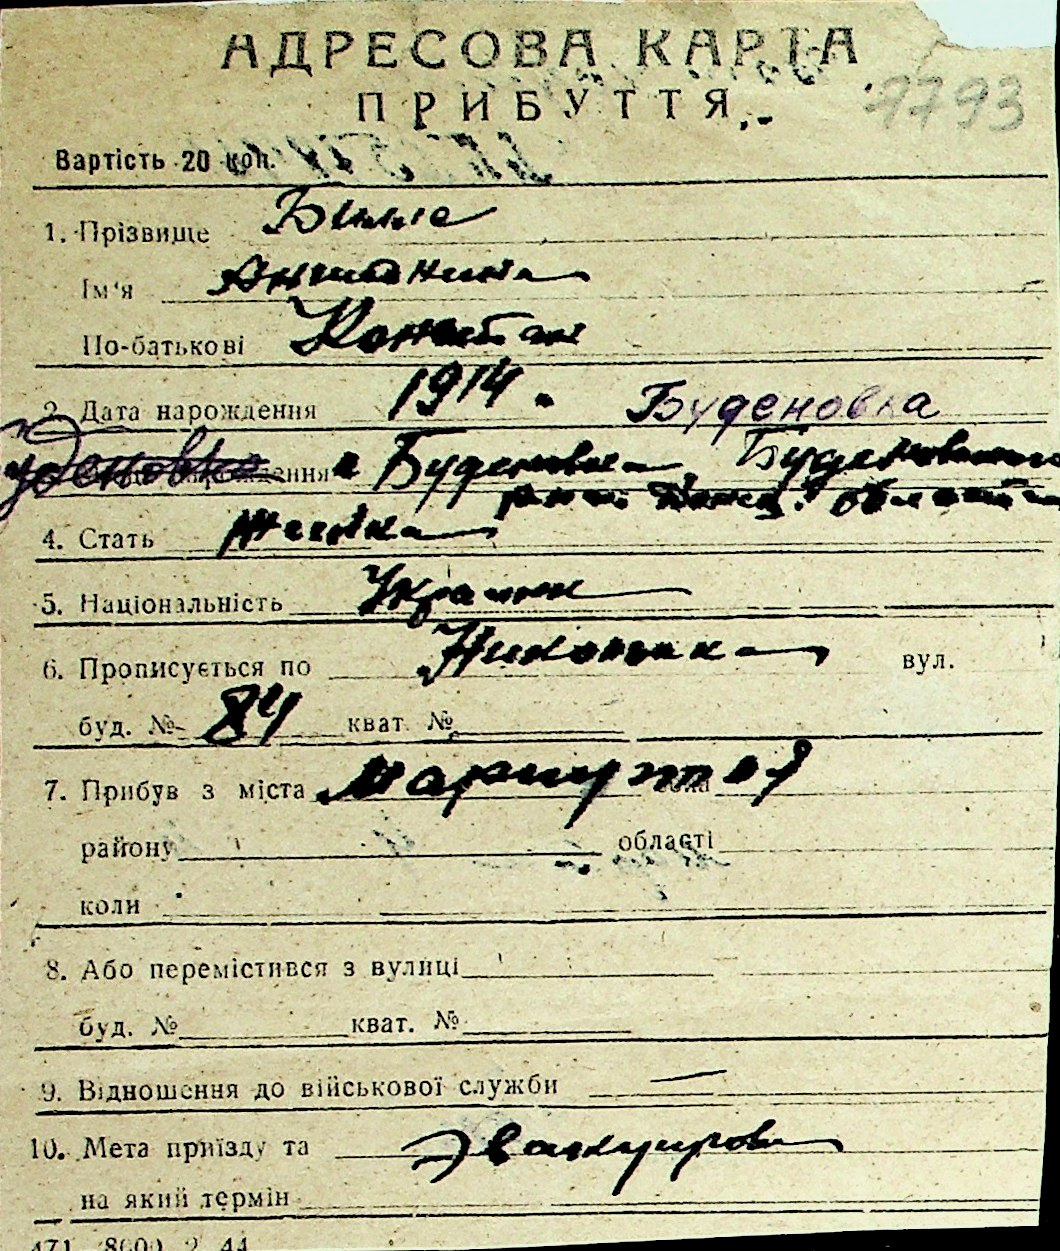 АДРЕСОВА КАРТА
ПРИБУТТЯ
7793
Вартість 20 коп.
1. Прізвище
Ім'я Антонина
По-батькові Конст
2. Дата нарождення 1914. Буденовка
Буденовка рождення Буденовка, Буденовского
4. Стать области
5. Національність Украин
6. Прописується по вул.
буд. № 84 кват №
7. Прибув з міста Мариуполя
району області
коли
8. Або перемістився з вулиці
буд. № кват. №
9. Відношення до військової служби —
10. Мета приїзду та Эвакуиров
на який термін
471 8000 2 44